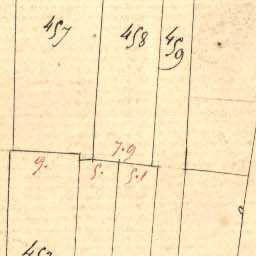 457 458 459
7.9
9. 5. 5.1